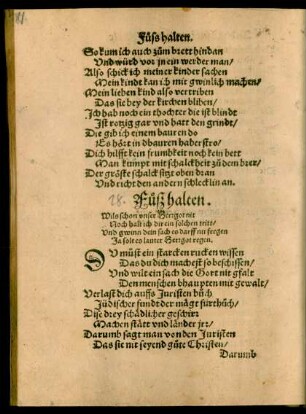 Füß halten.
So kum ich auch zům brett hindan
Vnd würd vor jn ein werder man/
Also schick ich meiner kinder sachen
Mein kindt kan ich mit gwinlich machen/
Mein lieben kind also vertriben
Das sie bey der kirchen bliben/
Ich hab noch ein thochter die ist blindt
Ist rotzig gar vnd hatt den grindt/
Die gib ich einem bauren do
Es hört in dbauren haber stro/
Dich hilfft kein frumbkeit noch kein bett
Man kumpt mit schalckheit zů dem bret/
Der gröste schalck sitzt oben dran
Vnd richt den andern schlecklin an.
28. Füß halten.
Wils schon vnser Herrgot nit
Noch halt ich dir ein solchen tritt/
Vnd gwinn dein sach es darff nit fregen
Ja solt es lauter Herrgot regen.
DV můst ein starcken rucken wissen
Das du dich machest so beschissen/
Vnd wilt ein sach die Gott nit gfalt
Den menschen bhaupten mit gewalt/
Verlast dich auffs Juristen bůch
Jüdischer fundt der mägt fürthůch/
Dise drey schädlicher geschirr
Machen stätt vnd länder jrr/
Darumb sagt man von den Juristen
Das sie nit seyend gůte Christen/
Darumb